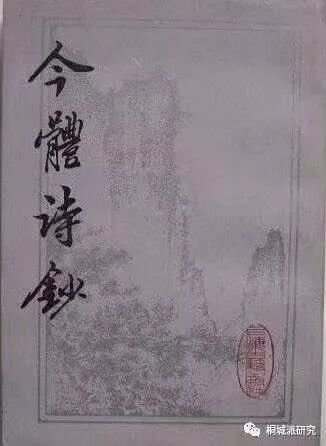 今體诗鈔
桐城派研究